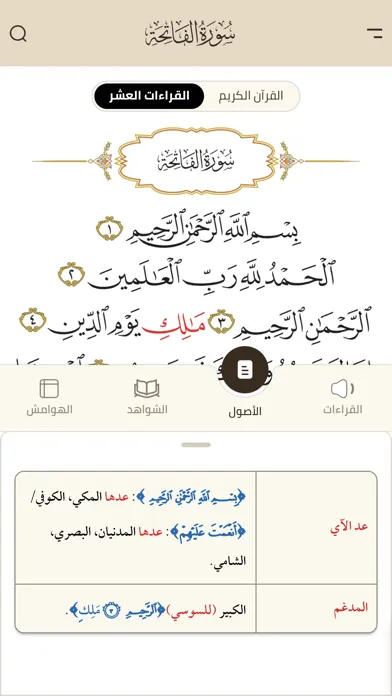 سُورَةُ الفَاتِحَةِ
القرآن الكريم
القراءات العشر
سُورَةُ الفَاتِحَةِ
بِسْمِ ٱللَّهِ ٱلرَّحْمَٰنِ ٱلرَّحِيمِ ١
ٱلْحَمْدُ لِلَّهِ رَبِّ ٱلْعَالَمِينَ ٢
ٱلرَّحْمَٰنِ ٱلرَّحِيمِ ٣ مَلِكِ يَوْمِ ٱلدِّينِ ٤
القراءات
الأصول
الشواهد
الهوامش
عد الآي
﴿بِسْمِ ٱللَّهِ ٱلرَّحْمَٰنِ ٱلرَّحِيمِ﴾: عدها المكي، الكوفي/
﴿أَنْعَمْتَ عَلَيْهِمْ﴾: عدها المدنيان، البصري،
الشامي.
المدغم
الكبير (للسوسي) ﴿ٱلرَّحِيمِ ٣ مَلِكِ﴾.